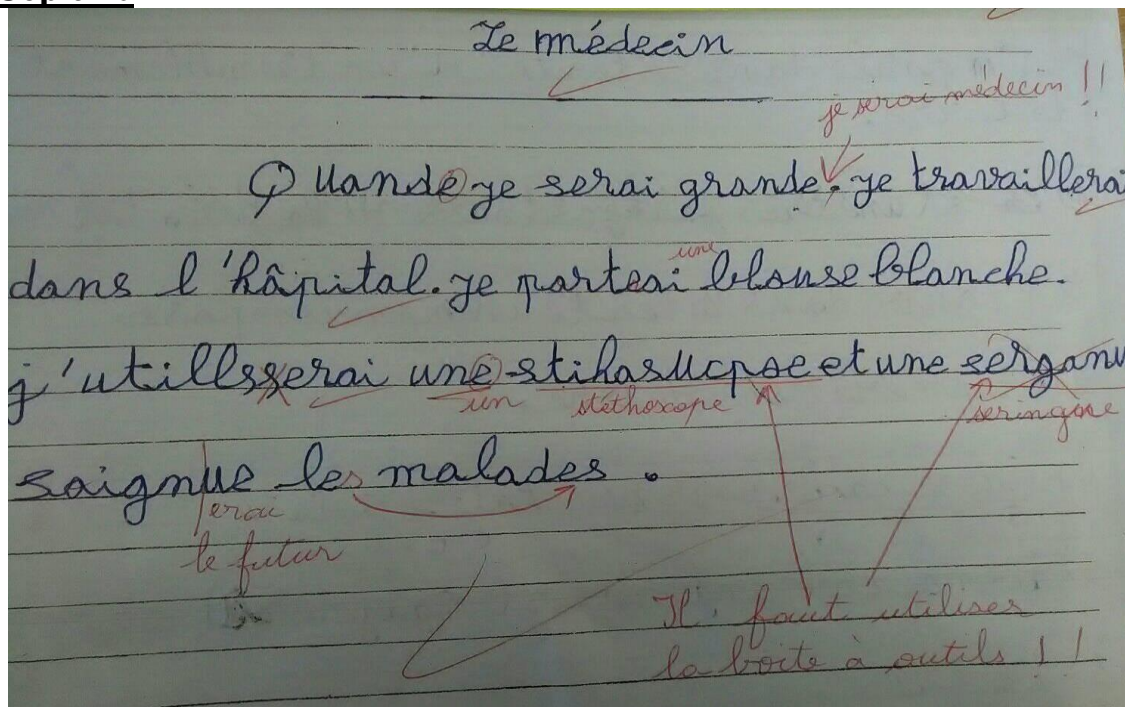 Le médecin
je serai médecin !!
Quande je serai grande, je travaillerai
une
dans l'hôpital. je porterai blouse blanche.
j'utillsserai une stihasucpoe et une serganu
un stéthoscope seringue
soignue les malades.
erai
le futur
Il faut utiliser
la boite à outils !!